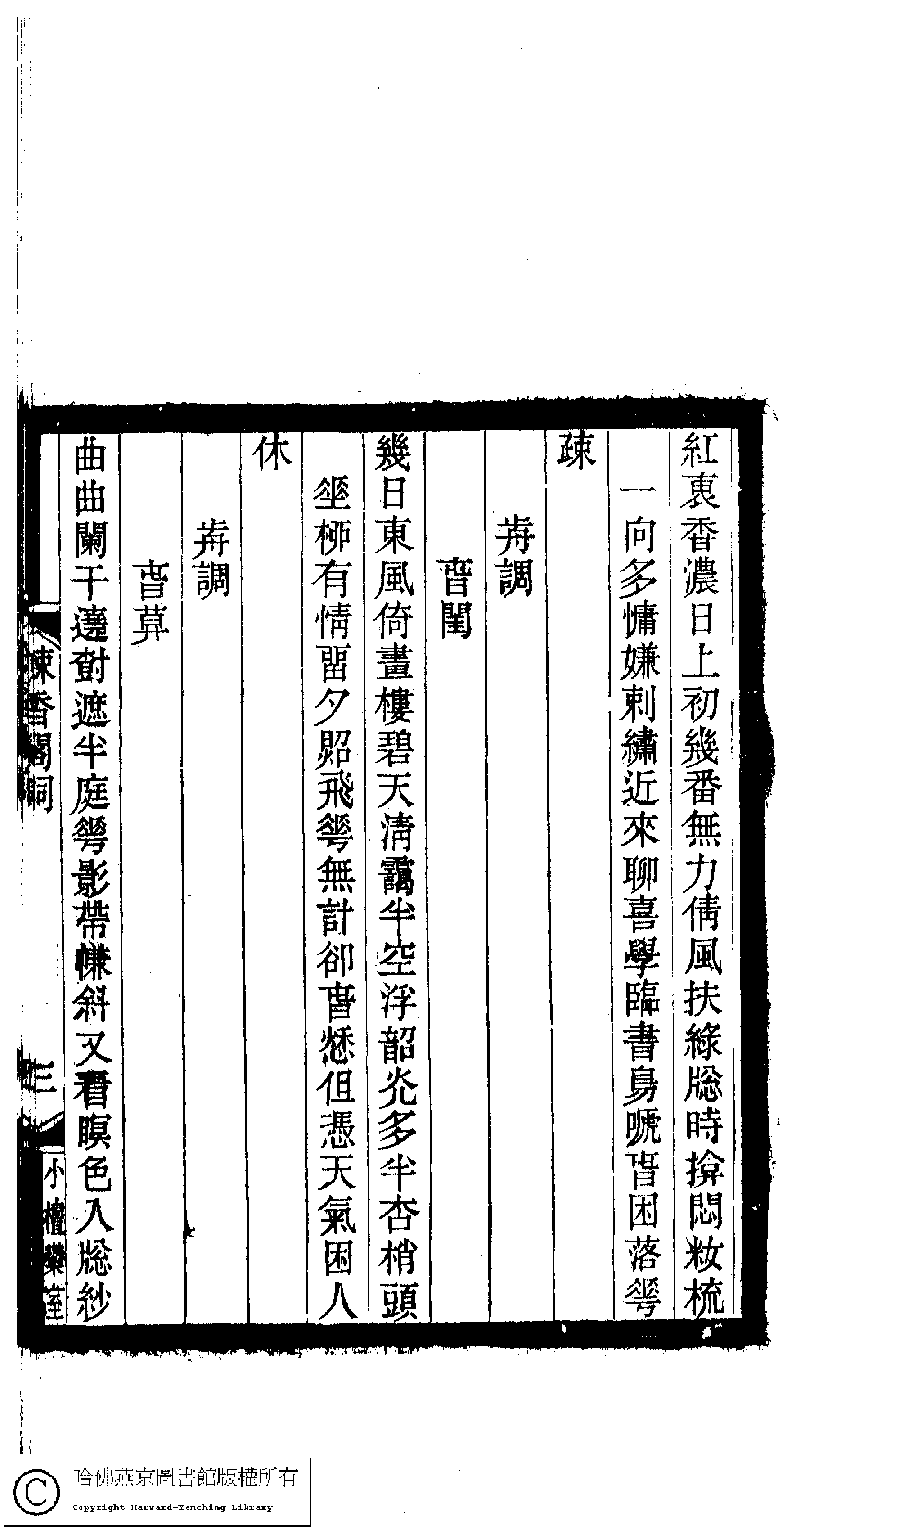 紅裛香濃日上初幾番無力倩風扶綠牕時揜悶籹梳
一向多慵嫌刺繡近來聊喜學臨書鳥嗁旾困落𠌶
疎
歬調
旾閨
幾日東風倚畫樓碧天清靄半空浮韶灮多半杏梢頭
坙桺有情畱夕照飛𠌶無計卻旾愁但憑天氣困人
休
歬調
旾莫
曲曲闌干遶尌遮半庭𠌶影帶㡘斜又看瞑色入牕紗
棟香閣詞
三
小檀欒室
哈佛燕京圖書館版權所有
Copyright Harvard-Yenching Library